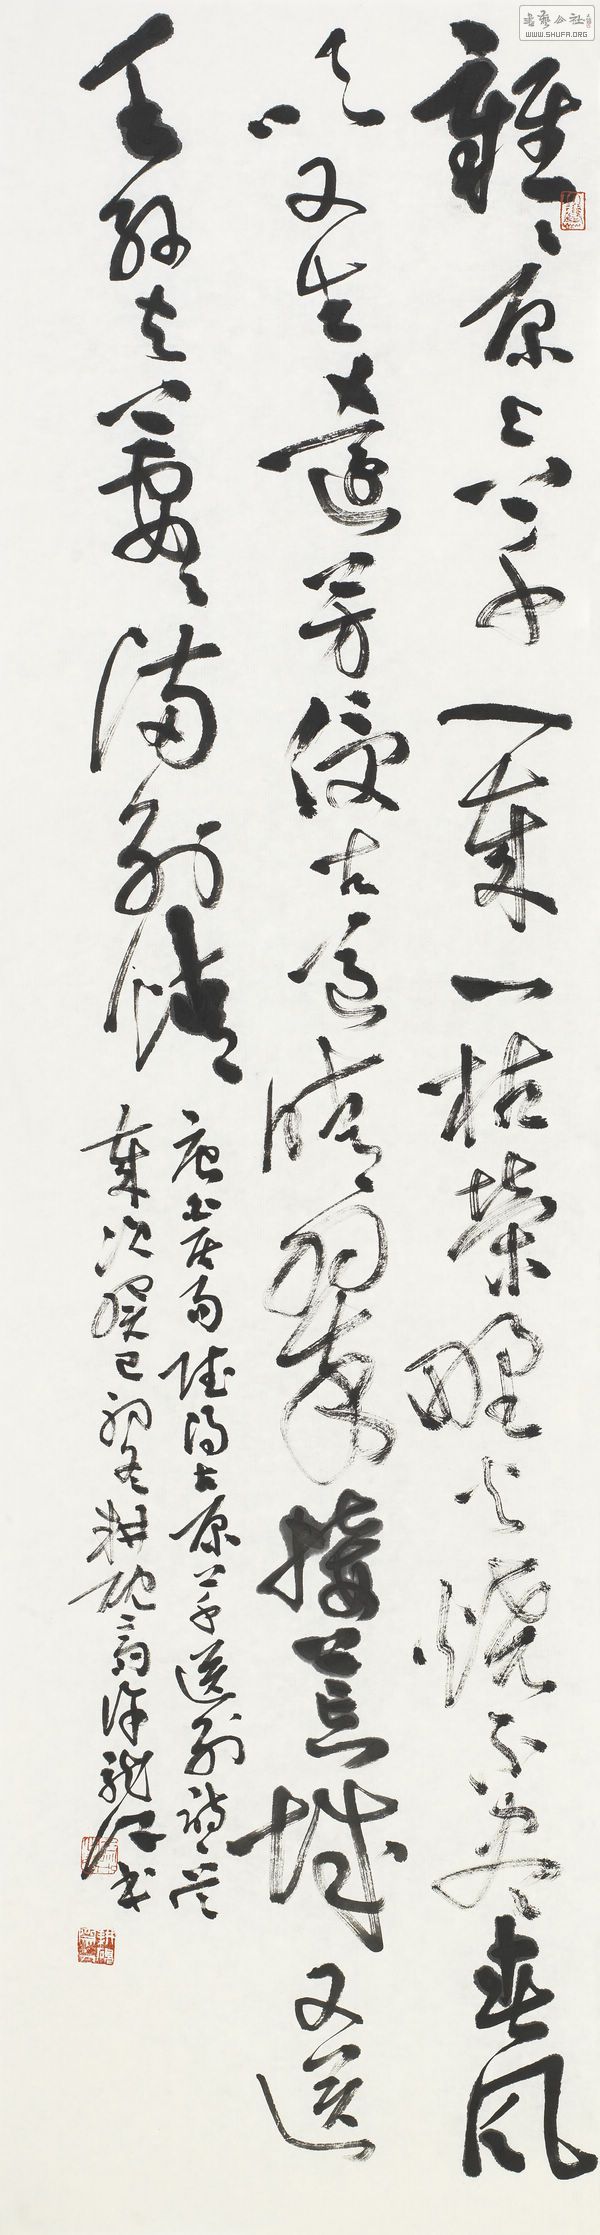 書藝公社
WWW.SHUFA.ORG
離々原上草一歲一枯榮野火燒不盡春風
吹又生遠芳侵古道晴翠接荒城又送
王孫去萋々滿別情
唐白居易賦得古原草送別詩
歲次癸巳初冬耕硯齋龍江書